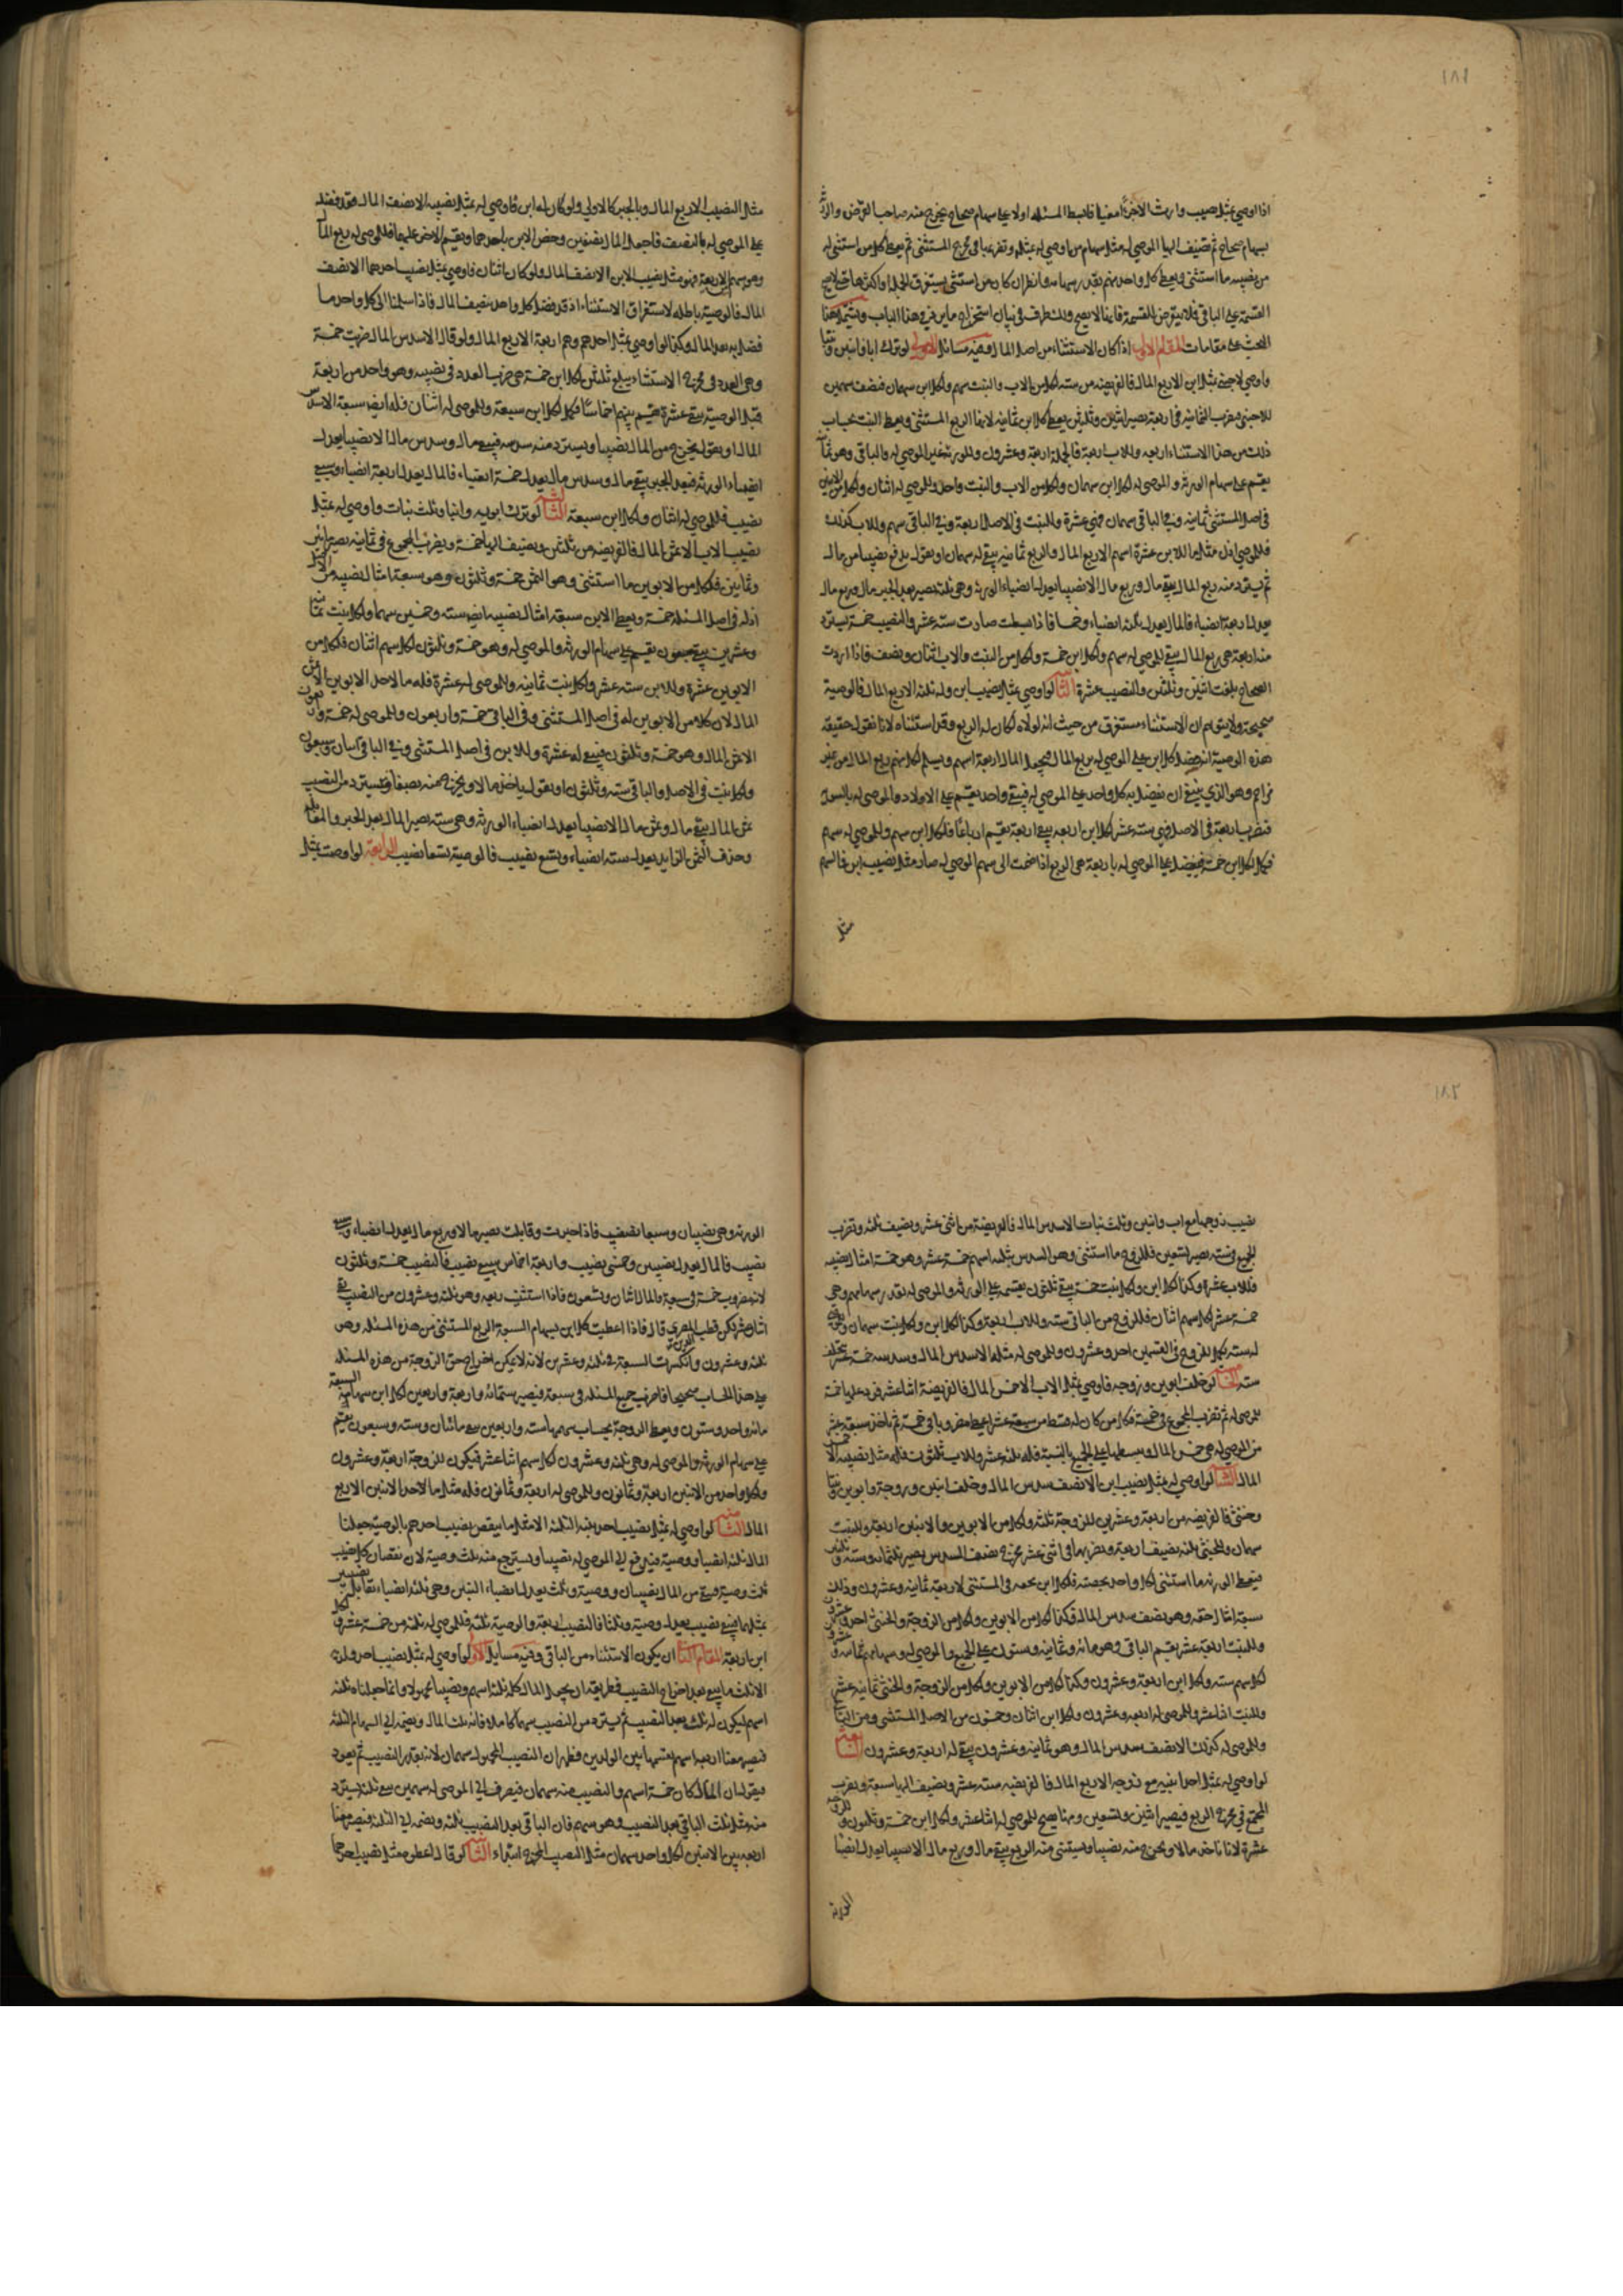 ١٨١
اذا اوصى بمثل نصيب وارث الا جزءا معينا فابسط المسئله اولا على سهام صحاح يخرج منه صاحب الفرض والارث
بسهام صحاح ثم تضيف اليها للموصى له مثل سهام من اوصى له بمثله وتضربها فى مخرج المستثنى ثم يعطى كل من استثنى له
من نصيبه ما استثنى ويعطى كل واحد منهم بقدر سهامه
القسمة على الباقى فلا يتعرض للقسمة فانها لا تصح ولنشرع فى بيان استخراج ما يرد فى هذا الباب ويشتمل هنا
البحث على مقامات المقام الاول اذا كان الاستثناء من اصل المال وفيه مسائل الاولى لو ترك ابا وابنين وبنتا
واوصى لاجنبى بمثل ابن الا ربع المال فالفريضه من سته لكل من الاب والبنت سهم ولكل ابن سهمان فنضف سهمين
للاجنبى ونضرب الثمانيه فى اربعة نصير اثنين وثلثين يعطى كل ابن ثمانيه لانها الربع المستثنى ويعطى البنت بحساب
ذلك من هذا الاستثناء اربعه وللاب اربعة فالجملة اربعة وعشرون وللورثة غير الموصى له والباقى وهو ثمانية
يقسم على سهام الورثه والموصى له لكل ابن سهمان ولكل من الاب والبنت واحد وللموصى له اثنان ولكل من الابنين
فى اصل المستثنى ثمانيه وفى الباقى سهمان فهى عشرة وللبنت فى الاصل اربعة وفى الباقى سهم وللاب كذلك
فللموصى له مثل ما للابن عشرة اسهم الا ربع المال والربع ثمانيه يبقى له سهمان او نقول يدفع نصيبا من مال
ثم يسترد منه ربع المال يبقى مال وربع مال الا نصيبا يعدل انصباء الورثه وهى ثلثه نصير بعد الجبر مال وربع مال
يعدل اربعة انصباء فالمال يعدل ثلثة انصباء وخمسا فاذا بسطت صارت سته عشر والنصيب خمسة يسترد
منه اربعة هى ربع المال يبقى للموصى له سهم ولكل ابن خمسة ولكل من البنت والاب اثنان ونصف فاذا اردت
الصحاح بلغت اثنين وثلثين والنصيب عشرة الثانية لو اوصى بمثل نصيب ابن وله ثلثة الا ربع المال فالوصية
صحيحة ولا يتوهم ان الاستثناء مستغرق من حيث انه لولاه لكان له الربع وقد استثناه لانا نقول حقيقه
هذه الوصية انه فضل كل ابن على الموصى له بربع المال فيجعل المال اربعة اسهم ويسلم لكل منهم ربع المال من غير
مزاحم وهو الذى ينبغى ان يفضل به كل واحد على الموصى له فيبقى واحد يقسم على الاولاد والموصى له بالسوية
فنضرب اربعة فى الاصل فهى سته عشر لكل ابن اربعه يبقى اربعة يقسم ارباعا فلكل ابن سهم وللموصى له سهم
فيكمل لكل ابن خمسة فيفضل على الموصى له باربعة هى الربع اذا ضمت الى سهم الموصى له صار مثل نصيب ابن فالسهم
مثل
مثل النصيب الا ربع المال وبالجبر كالاولى ولو كان له ابن فاوصى له بمثل نصيبه الا نصف المال فقد فضله
على الموصى له بالنصف فاجعل المال نصفين وخص الابن باحدهما ويقسم الاخر عليهما فللموصى له ربع المال
وهو سهم من الاربعة فهو مثل نصيب الابن الا نصف المال ولو كان اثنان فاوصى بمثل نصيب احدهما الا نصف
المال فالوصية باطله لاستغراق الاستثناء اذ قد فضل كل واحد بنصف المال فاذا سلمنا الى كل واحد ما
فضل به بعد المال وكذا لو اوصى بمثل احدهم وهم اربعة الا ربع المال ولو قال الا سدس المال ضربت خمسة
وهى العدد فى مخرج الاستثناء يبلغ ثلثين لكل ابن خمسة هى ضرب العدد فى نصيبه وهو واحد من اربعة
قبل الوصية يبقى عشرة يقسم بينهم اخماسا فيكمل لكل ابن سبعة وللموصى له اثنان فله نصيب سبعة الا سدس
المال او نقول يخرج من المال نصيبا ويسترد منه سدسه فيبقى مال وسدس مال الا نصيبا يعدل
انصباء الورثه فبعد الجبر يبقى مال وسدس مال يعدل خمسة انصباء فالمال يعدل اربعة انصباء وسبعى
نصيب فللموصى له اثنان ولكل ابن سبعة الثالثة لو ترك ابويه وابنا وثلث بنات واوصى له بمثل
نصيب الاب الا ثمن المال فالفريضه من ثلثين ويضيف اليها خمسة ويضرب المجموع فى ثمانيه نصير مائتين
وثمانين فلكل من الابوين ما استثنى وهو الثمن خمسة وثلثون وهو سبعة امثال نصيبه من الاصل
اذ له فى اصل المسئلة خمسة ويعطى الابن سبعة امثال نصيبه ايضا سته وخمسين سهما ولكل بنت ثمانيه
وعشرين يبقى سبعون يقسم على سهام الورثه والموصى له وهو خمسة وثلثون لكل سهم اثنان فلكل من
الابوين عشرة وللابن سته عشر ولكل بنت ثمانيه وللموصى له عشرة فله مال لاحد الابوين الا ثمن
المال لان كل من الابوين له فى اصل المستثنى وفى الباقى خمسة واربعون وللموصى له خمسة واربعون
الا ثمن المال وهو خمسة وثلثون فيبقى له عشرة وللابن فى اصل المستثنى وفى الباقى اثنان وسبعون
ولكل بنت فى الاصل والباقى سته وثلثون او نقول ياخذ مالا ويخرج منه نصيبا ويسترد من النصيب
ثمن المال يبقى مال وثمن مال الا نصيبا يعدل انصباء الورثه وهى سته يصير المال بعد الجبر والمقابله
وحذف الثمن الزايد يعدل سته انصباء وتسع نصيب فالوصية تسعا نصيب الرابعة لو اوصت بمثل
١٨٢
نصيب زوجها مع اب وابنين وثلث بنات الا سدس المال فالفريضة من اثنى عشر ويضيف ثلثه ويضرب
المجموع فى سته نصير تسعين فللزوج ما استثنى وهو السدس مثله اسهم خمسة عشر وهو خمسة امثال نصيبه
فللاب عشرة وكذا لكل ابن ولكل بنت خمسة يبقى ثلثون يقسمه على الورثه والموصى له بقدر سهامهم وهى
خمسة عشر لكل سهم اثنان فللزوج من الباقى سته وللاب اربعة وكذا لكل ابن ولكل بنت سهمان
له سته يكمل للزوج فى القسمين احد وعشرون وللموصى له مثله الا سدس المال وسدسه خمسة عشر يتخلف
سته الخامسة لو خلفت ابوين وزوجه فاوصى بمثل الاب الا خمس المال فالفريضة اثنا عشر فزد عليها خمسة
للموصى له ثم تضرب المجموع فى خمسة فكل من كان له قسط من سبعة عشر اعطى مضروبا فى خمسة ثم ناخذ سبعة عشر
من الموصى له هى خمس المال ويبسطها على الجميع بالنسبة فله ثلثه عشر وللاب ثلثون فله مثل نصيبه الا خمس
المال السادسة لو اوصى له بمثل نصيب ابن الا نصف سدس المال وخلف ابنين وزوجة وابوين وبنتا
وخنثى فالفريضه من اربعة وعشرين للزوجة ثلثه ولكل من الابوين والابنين اربعة وللبنت
سهمان وللخنثى ثلثه نضيف اربعة ونضربها فى اثنى عشر مخرج نصف السدس يصير ثلثمائه وسته وثلثين
فيعطى الورثه ما استثنى لكل واحد بحصته فلكل ابن بحقه فى المستثنى الاربعة ثمانيه وعشرون وذلك
سبعة امثال حقه وهو نصف سدس المال وكذا لكل من الابوين ولكل من الزوجة والخنثى احد وعشرون
وللبنت اربعة عشر يقسم الباقى وهو مائه وثمانيه وستون على الجميع والموصى له وسهامهم ثمانيه وعشرون
لكل سهم سته ولكل ابن اربعة وعشرون وكذا لكل من الابوين ولكل من الزوجة والخنثى ثمانيه عشر
وللبنت اثنا عشر وللموصى له اربعه وعشرون ولكل ابن اثنان وخمسون من الاصل المستثنى ومن الباقى
وللموصى له كذلك الا نصف سدس المال وهو ثمانيه وعشرون يبقى له اربعة وعشرون السابعة
لو اوصى له بمثل احد ابنيه مع زوجه الا ربع المال فالفريضه سته عشر ويضيف اليها سبعة ويضرب
المجتمع فى مخرج الربع فيصير اثنين وتسعين ومنها يصح للموصى له اثنا عشر ولكل ابن خمسة وثلثون وللزوجه
عشرة لانا ناخذ مالا ويخرج منه نصيبا ويستثنى منه الربع يبقى مال وربع مال الا نصيبا يعدل انصبا
الورثة
الورثه وهى نصيبان وسبعا نصيب فاذا جبرت وقابلت يصير مالا وربع مال يعدل انصباء وسبعى
نصيب فالمال يعدل نصيبين وخمسى نصيب واربعة اخماس سبع نصيب فالنصيب خمسة وثلثون
لانه مضروب خمسة فى سبعة والمال اثنان وتسعون فاذا استثنيت ربعه وهو ثلثه وعشرون من النصيب بقى
اثنا عشر لكن قطب الدين المصرى قال فاذا اعطيت كل ابن بسهام السبعة الربع المستثنى من هذه المسئله وهو
ثلثه وعشرون وانكسرت السبعة على ثلثه وعشرين لانه لا يمكن اخراج حق الزوجة من هذه المسئله
على هذا الحساب صحيحا فاضرب جميع المسئله فى سبعة فيصير ستمائه واربعة واربعين لكل ابن بسهامه السبعة
مائه واحد وستون ويعطى الزوجة بحساب سهمها سته واربعين يبقى مائتان وسته وسبعون يقسم
على سهام الورثه والموصى له وهى ثلثه وعشرون لكل سهم اثنا عشر فيكون للزوجة اربعة وعشرون
ولكل واحد من الابنين اربعة وثمانون وللموصى له اربعة وثمانون فله مثل ما لاحد الابنين الا ربع
المال الثامنة لو اوصى له بمثل نصيب احد بنيه الثلثه الا مثل ما ينقص نصيب احدهم بالوصية جعلنا
المال ثلثه انصباء ووصية فيدفع الى الموصى له نصيبا ويسترجع منه ثلث وصية لان نقصان كل نصيب
ثلث وصية فيبقى من المال نصيبان ووصية وثلث يعدل انصباء البنين وهى ثلثه انصباء نقابل نصيبين
بمثلهما يبقى نصيب يعدل وصية وثلثا فالنصيب اربعة والوصية ثلثه فللموصى له ثلثه من خمسة عشر ولكل
ابن اربعة المقام الثانى ان يكون الاستثناء من الباقى وفيه مسايل الاولى لو اوصى له بمثل نصيب احد ولديه
الا ثلث ما يبقى بعد اخراج النصيب فطريقه ان يجعل المال كله ثلثة اسهم ونصيبا مجهولا وانما جعلناه ثلثه
اسهم ليكون له ثلث بعد النصيب ثم يسترد من النصيب سهما كاملا فانه ثلث المال ونضمه الى السهام الثلثه
فيصير معنا اربعه اسهم نقسمها بين الولدين فظهر ان النصيب المجهول سهمان لانه بقدر النصيب ثم نعود
فيقول ان المال كان خمسة اسهم والنصيب منه سهمان فيصرف الى الموصى له سهمين يبقى ثلثه يسترد
منه مثل ثلث الباقى بعد النصيب وهو سهم فان الباقى بعد النصيب ثلثه ونضمه الى الثلثه فيصير معنا
اربعة بين الابنين لكل واحد سهمان مثل النصيب المخرج ابتداء الثانية لو قال اعطوه مثل نصيب احدهما